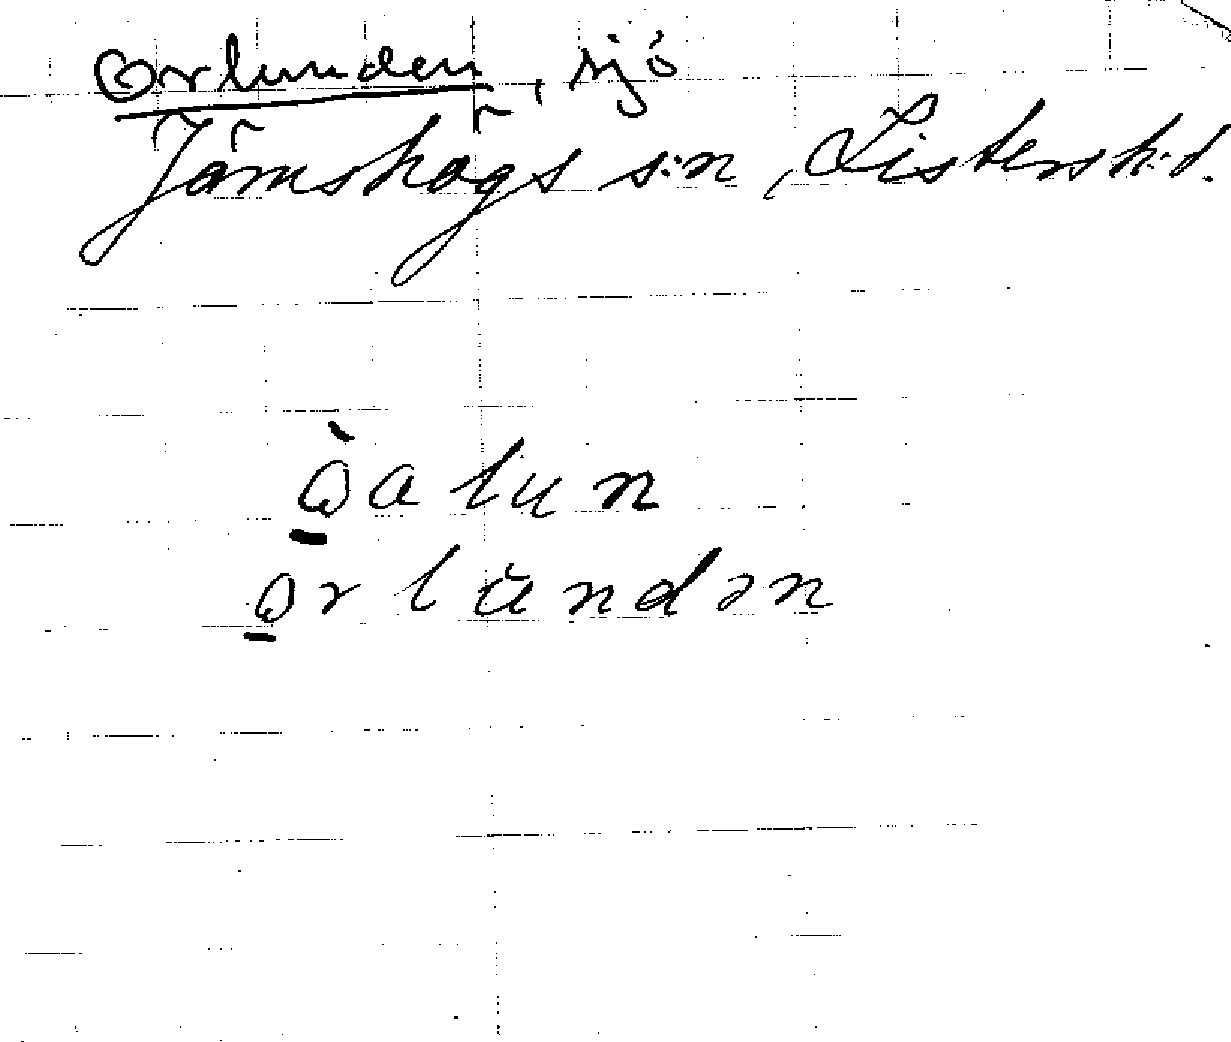 Orlunden, sjö
Jämshögs s:n, Listers h:d.
o̱̓alun
o̱rlùndən